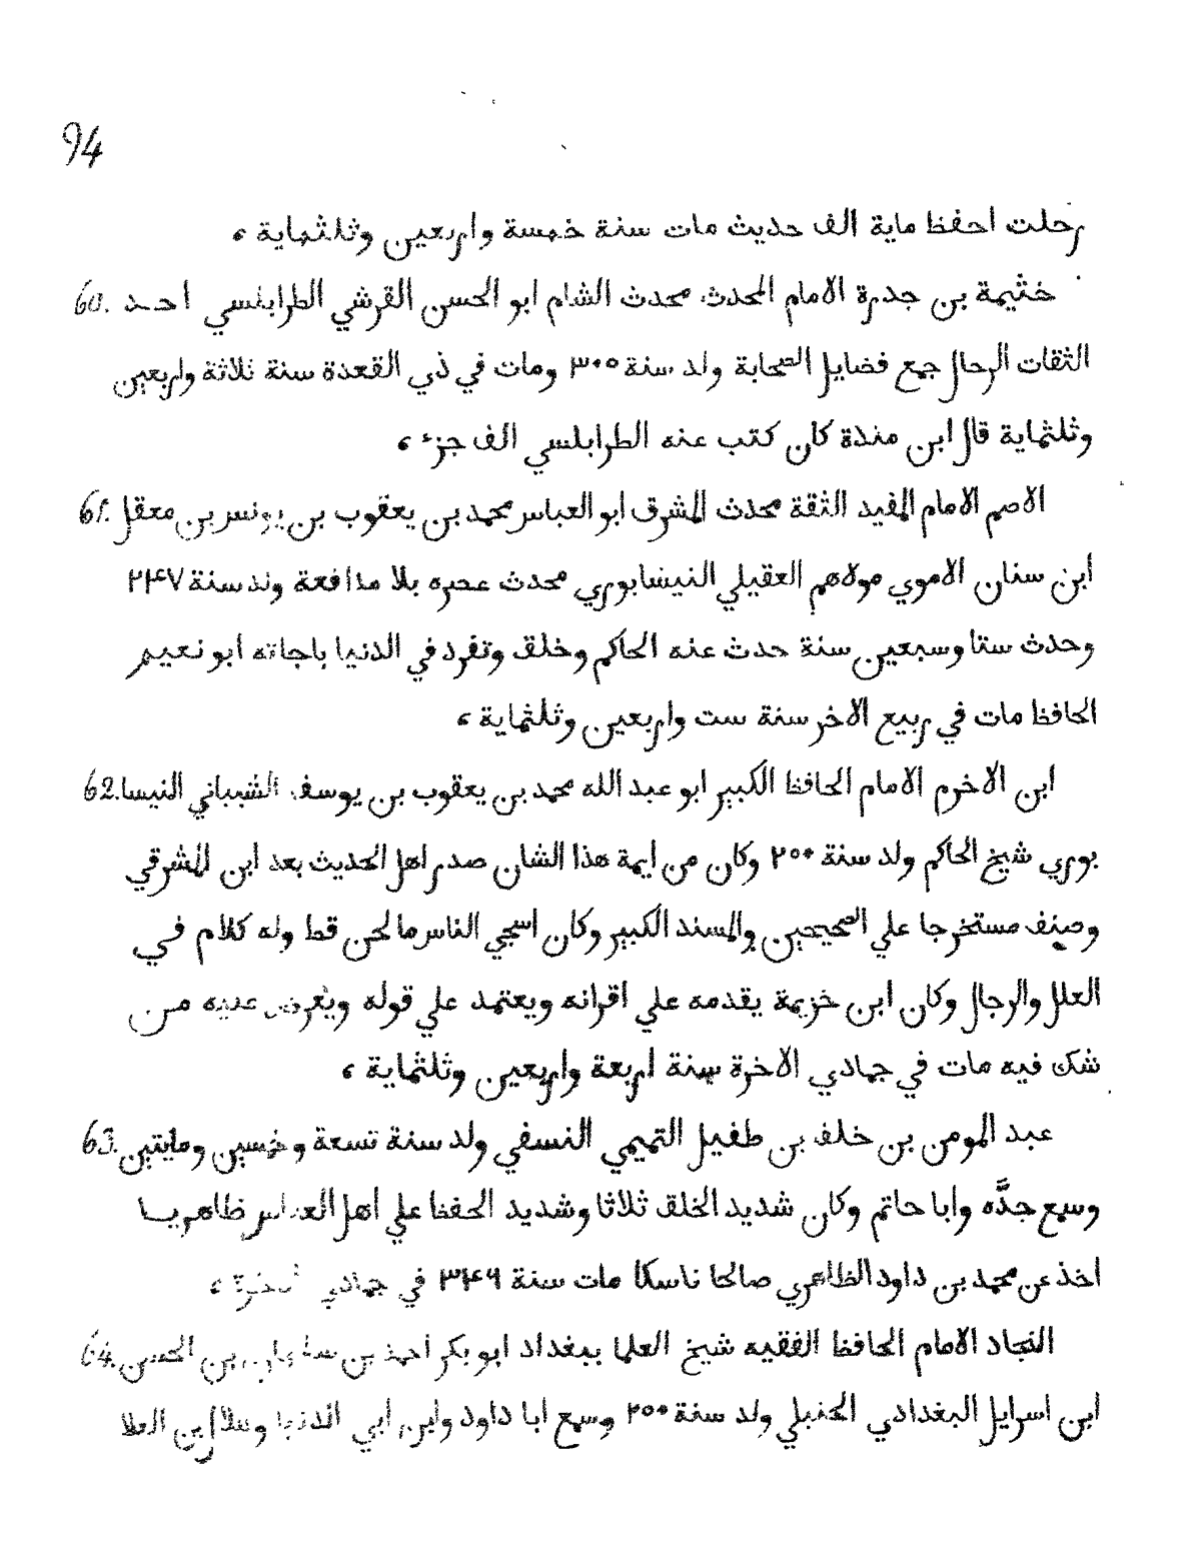 94
رحلت احفظ ماية الف حديث مات سنة خمسة واربعين وثلثماية ،
60. خثيمة بن جدرة الامام المحدث محدث الشام ابو الحسن القرشي الطرابلسي احد
الثقات الرحال جمع فضايل الصحابة ولد سنة ٣٠٥ ومات في ذي القعدة سنة ثلاثة واربعين
وثلثماية قال ابن مندة كان كتب عنه الطرابلسي الف جزء ،
61. الاصم الامام المفيد الثقة محدث المشرق ابو العباس محمد بن يعقوب بن يونس بن معقل
ابن سنان الاموي مولاهم العقيلي النيشابوري محدث عصره بلا مدافعة ولد سنة ٢٤٧
وحدث ستا وسبعين سنة حدث عنه الحاكم وخلق وتفرد في الدنيا باجاته ابو نعيم
الحافظ مات في ربيع الاخر سنة ست واربعين وثلثماية ،
62. ابن الاخرم الامام الحافظ الكبير ابو عبد الله محمد بن يعقوب بن يوسف الشيباني النيسا
بوري شيخ الحاكم ولد سنة ٢٥٠ وكان من ايمة هذا الشان صدر اهل الحديث بعد ابن المشرقي
وصنف مستخرجا علي الصحيحين والمسند الكبير وكان اسجي الناس ما لحن قط وله كلام في
العلل والرجال وكان ابن خزيمة يقدمه علي اقرانه ويعتمد علي قوله ويعرض عليه من
شك فيه مات في جمادي الاخرة سنة اربعة واربعين وثلثماية ،
63. عبد المومن بن خلف بن طفيل التميمي النسفي ولد سنة تسعة وخمسين ومايتين
وسمع جدَّه وابا حاتم وكان شديد الخلق ثلاثا وشديد الحفظ علي اهل ظاهريا
اخذ عن محمد بن داود الظاهري صالحا ناسكا مات سنة ٣٤٦ في جمادي الاخرة ،
64. النجاد الامام الحافظ الفقيه شيخ العلما ببغداد ابو بكر احمد بن سلمان بن الحسن
ابن اسرايل البغدادي الحنبلي ولد سنة ٢٥٠ وسمع ابا داود وابن ابي الدنيا وهلال بن العلا